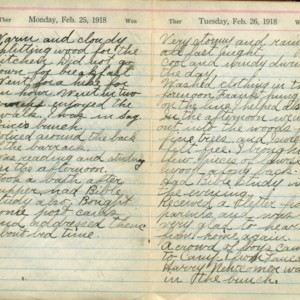 Ther Monday, Feb. 25, 1918 Wea
Warm and cloudy
splitting wood for the
kitchen Did not go
down for breakfast
Went for
an hour Went in two
enjoyed the
walk. I was in Sag
bunch
around the back
the barrack.
Was reading and studying
in the afternoon.
Took a bath after
supper had Bible
study also. Bought
some post cards
and addressed them
about bed time.
Ther Tuesday, Feb. 26, 1918 Wea
Very stormy and rained
all last night
Cool and windy during
the day.
Washed clothing in the
forenoon
on the line, helped
In the afternoon went
out into the woods
few pieces of
wood
Had Bible study in
the evening
Received a letter from
parents and was
very glad to hear
from home again.
A crowd of boys came
to camp from
Harry Newcomer was
in the bunch.